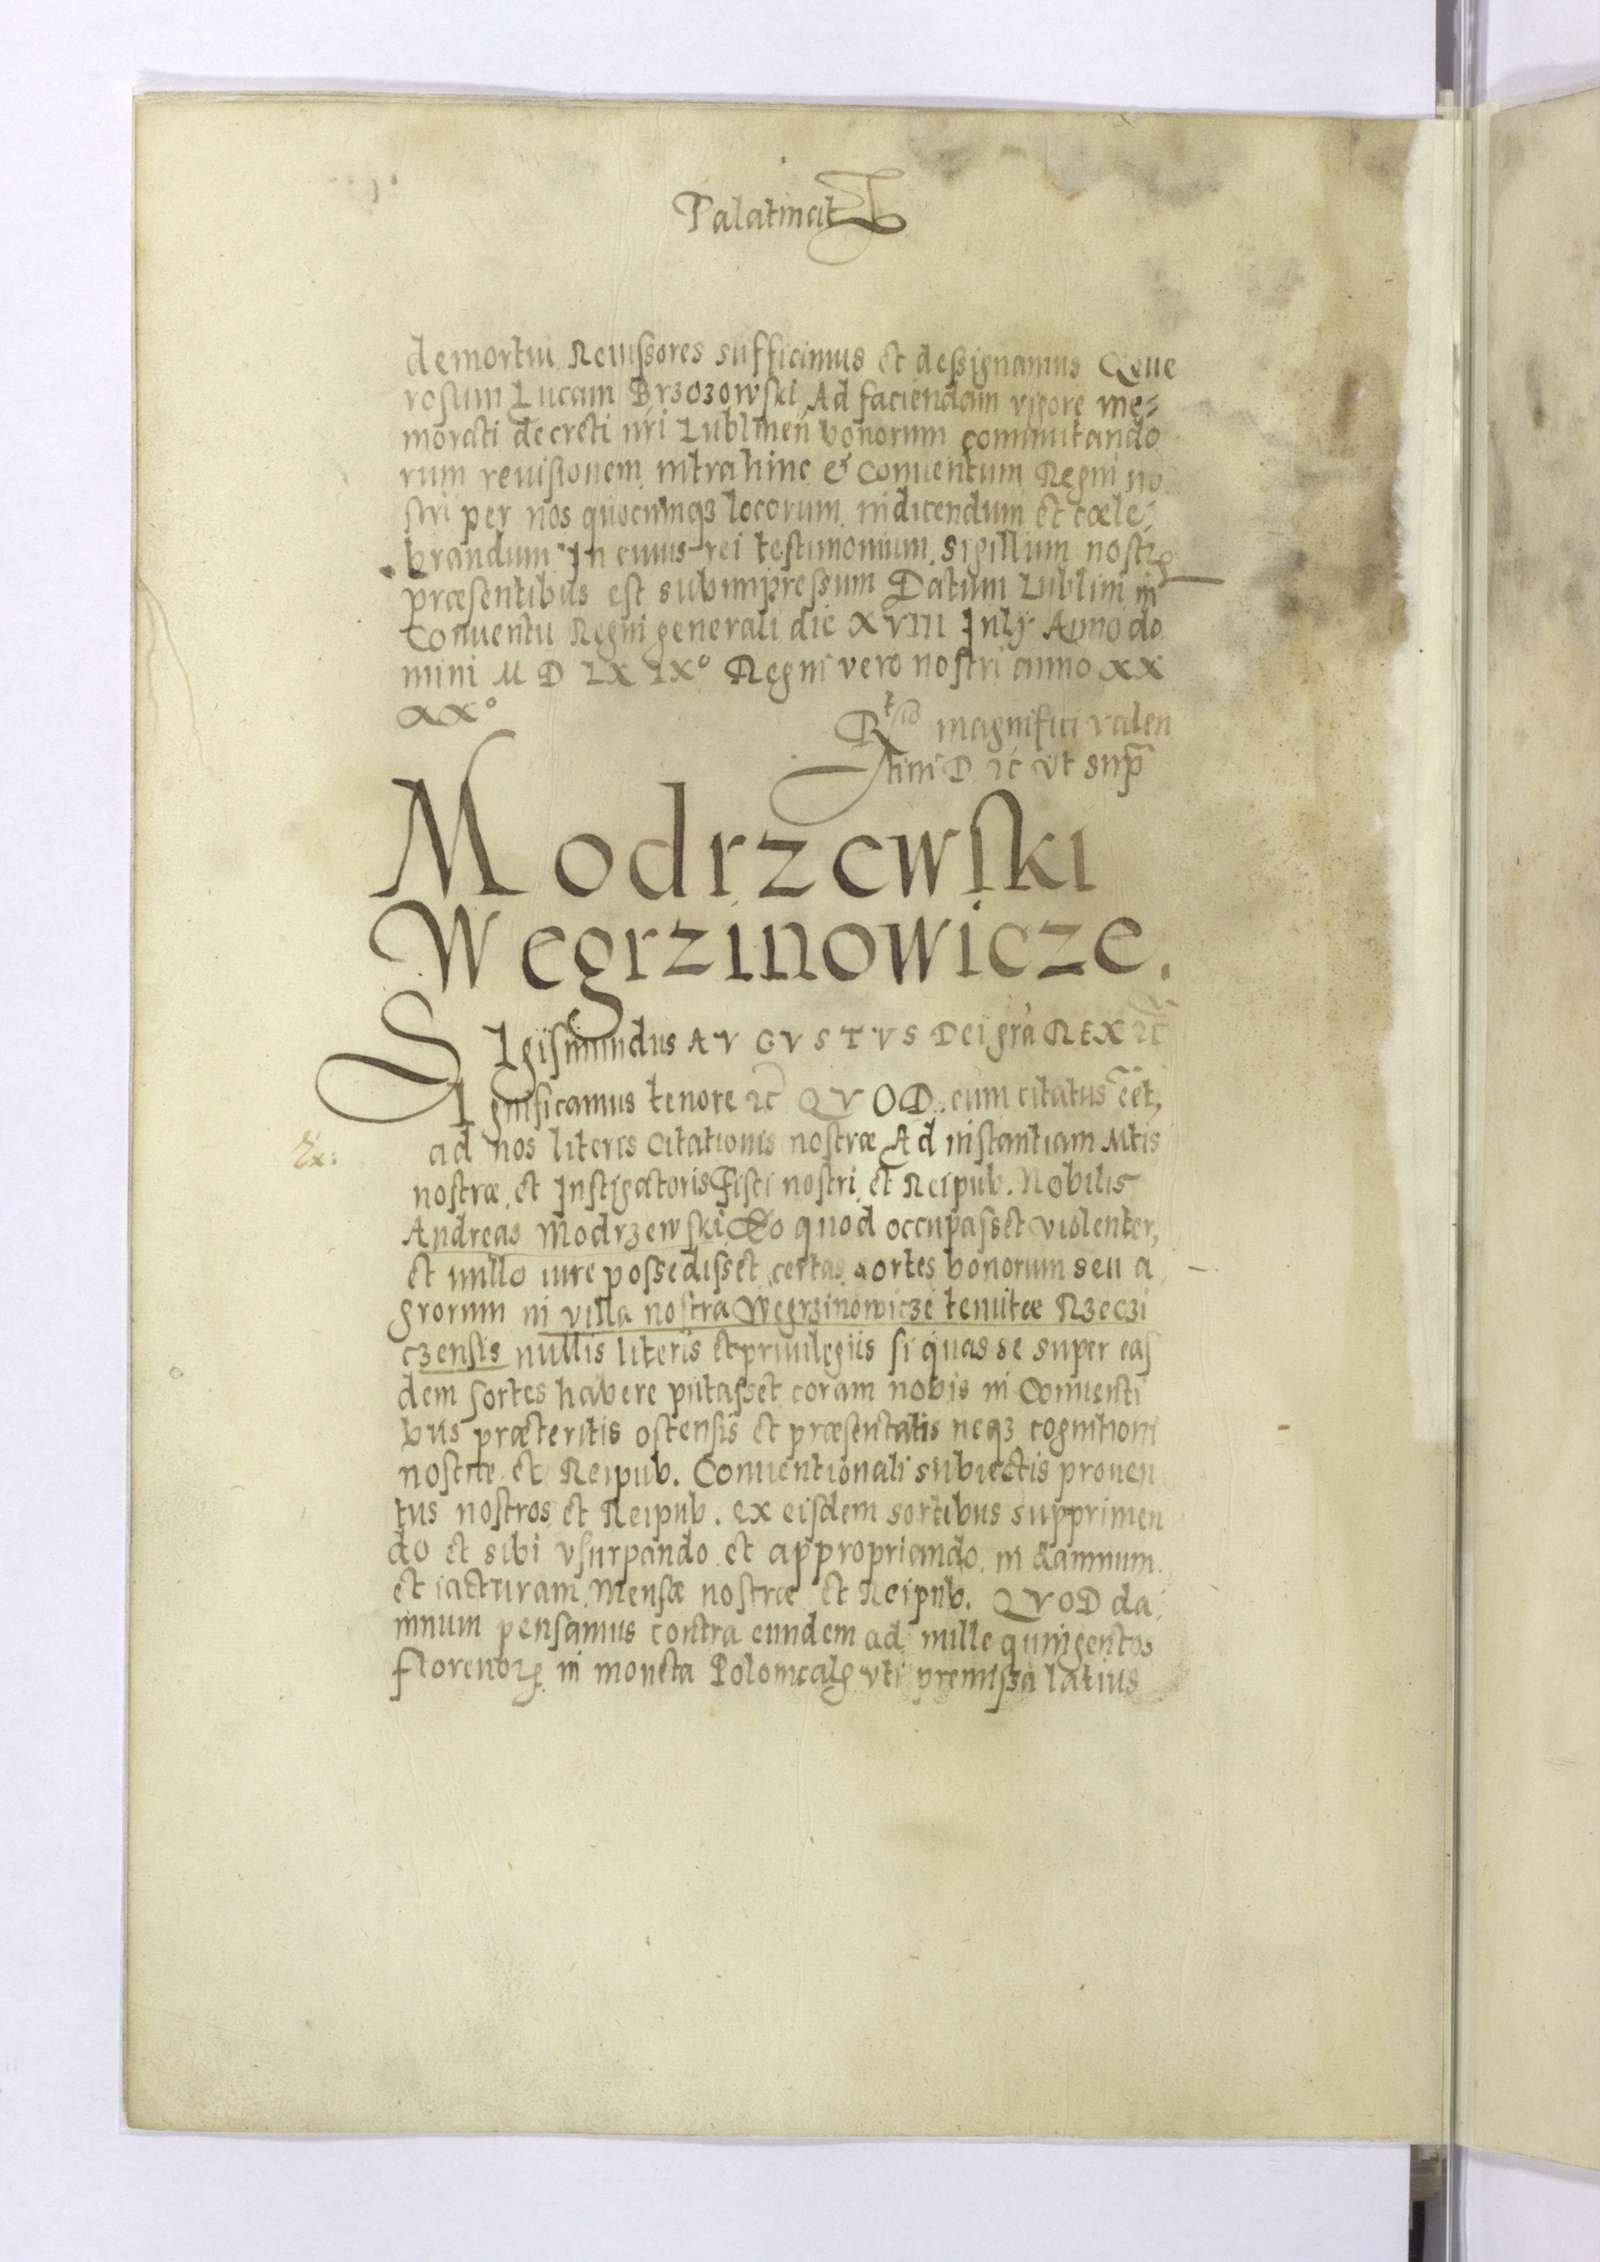 Palatinat
demortui Reuissores sufficimus et dessignamus Gene
rosum Lucam Brzozowski Ad faciendam vigore me=
morati decreti nri Lublinen bonorum commutando
rum reuisionem intra hinc & Conuentum Regni no
stri per nos quocunqз locorum indicendum et cœle=
brandum In cuius rei testimonium sigillum nostr
præsentibus est subimpressum Datum Lublini in
Conuentu Regni generali die XVIII Iuly Anno do
mini M D LX IXº Regni vero nostri anno XX
XXº
magnifici valen
tini D ꝛc vt supra
Modrzewski
Wegrzinowicze.
SIgismundus AVGVSTVS Dei gra REX ꝛc
Ignificamus tenore ꝛc QVOD cum citatus eēt,
Ex:
ad nos literis Citationis nostræ Ad instantiam Mtis
nostræ et Instigatoris Fisci nostri et Reipub. Nobilis
Andreas Modrzewski Eo quod occupasset violenter,
et nullo iure possedisset certas sortes bonorum seu a
grorum in villa nostra Wegrzinowicze tenutæ Rzeczi
czensis nullis literis et priuilegiis si quas se super eas
dem sortes habere putasset coram nobis in Conuenti
bus præteritis ostensis et præsentatis neqз cognitioni
nostræ et Reipub. Conuentionali subiectis prouen
tus nostros et Reipub. ex eisdem sortibus supprimen
do et sibi vsurpando et appropriando in damnum
et iacturam Mensæ nostræ et Reipub. QVOD da
mnum pensamus contra eundem ad mille quingentos
florenoꝝ in moneta Polonicalꝭ vti premissa latius